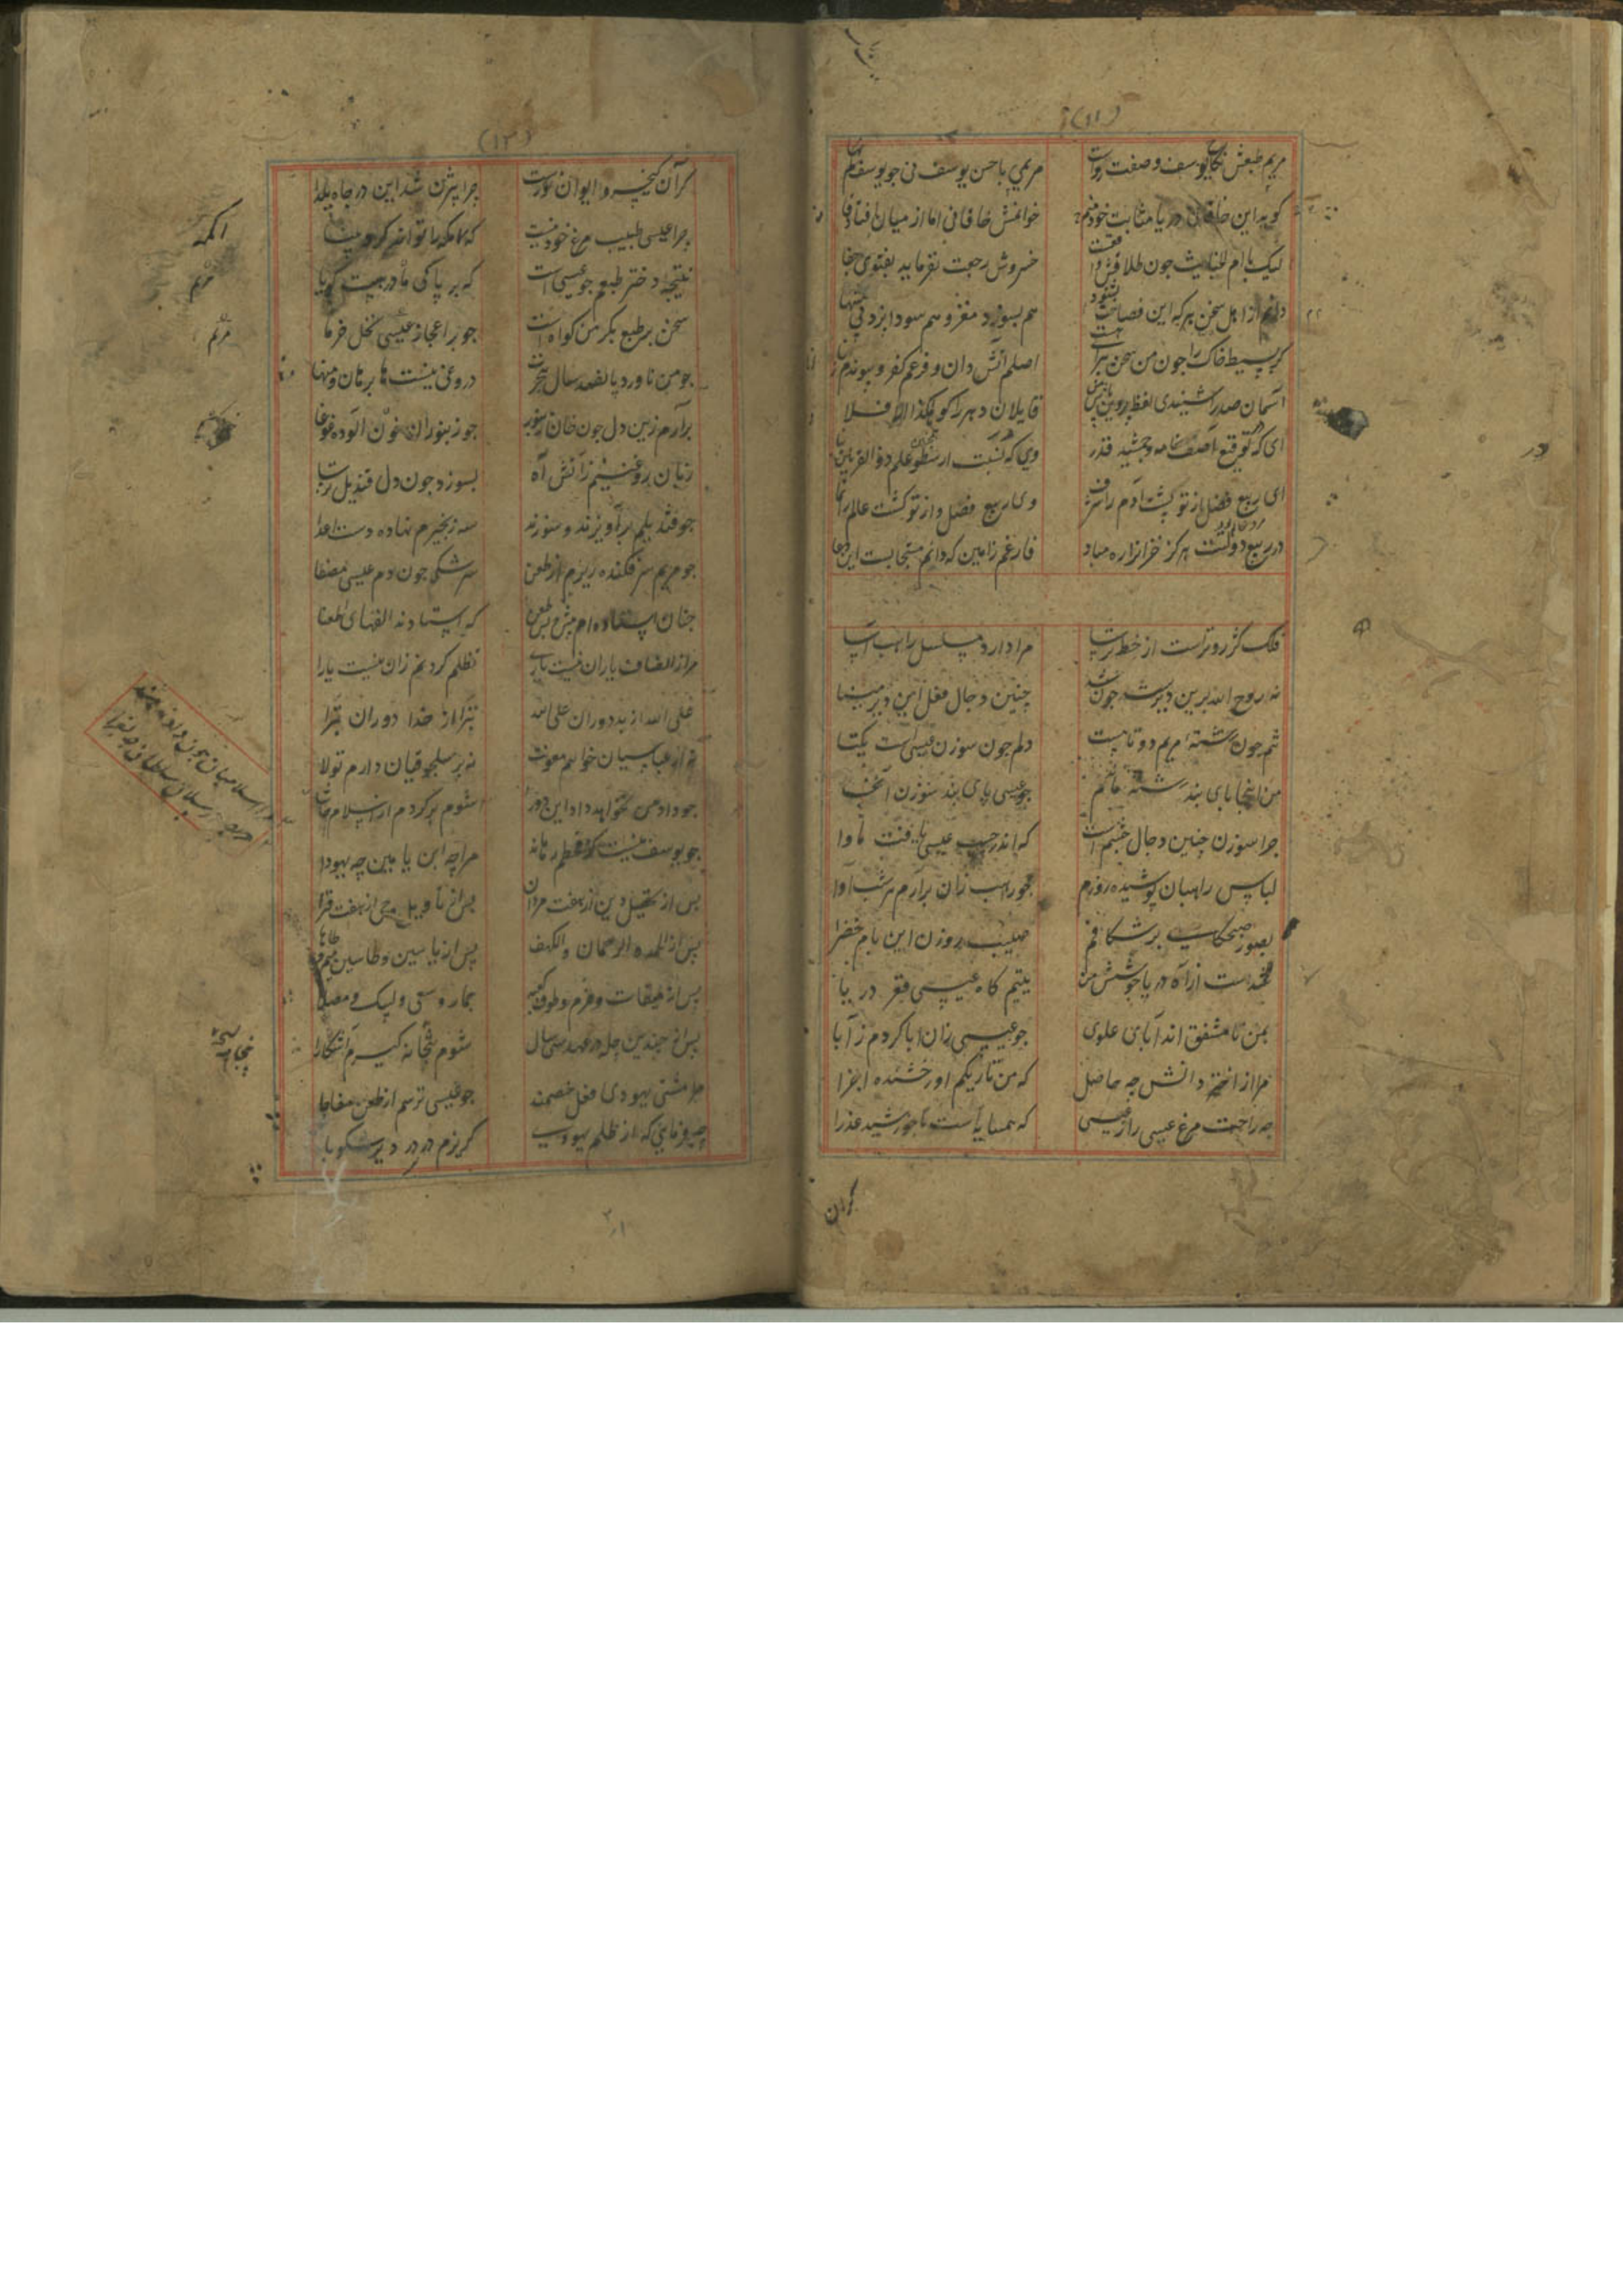 (۱۱)
مریم طبعش نکاح یوسف وصفت رواست مریمی با حسن یوسف نی جو یوسف کم بها
کوید این خاقانی دریا مثابت خود منم خوانمش خاقانی اما از میان افتاده قا
لیک با ام الخبایث جون طلاقش واقعست خسروش رجعت نفرماید بفتوی جفا
دانم از اهل سخن هرکه این فصاحت بشنود هم بسوزد مغز و هم سودا پزد بی منتها
کر بسیط خاک را جون من سخن اصلم آتش دان و فرعم کفر و پیوندم
آسمان صدرا شنیدی لفظ پروین بار من قایلان دهر را کو هکذا والا فلا
ای که توقیع آصف خامه و جمشید قدر وی که نسبت ارسطو علم ذو القرنین
ای ربیع فضل از تو پشت آدم را شرف وی ربیع فضل و از تو کشت عالم را نما
در ربیع دولتت هرکز خزان را ره مباد فارغم زامین که دانم مستجابست این دعا
فلک کژروترست از خط ترسا مرا دارد مسلسل راهب آسا
نه روح الله برین دیرست جون شد چنین دجال فعل این دیر مینا
تنم جون رشته مریم دو تاست دلم جون سوزن عیسی است یکتا
من اینجا پای بند رشته مانم جو عیسی پای بند سوزن آنجا
جرا سوزن چنین دجال چشم است که اندر جیب عیسی یافت ماوا
لباس راهبان پوشیده روزم جو راهب زان برآرم هر شب آوا
بصور صبحکاهی برشکافم صلیب روزن این بام خضرا
شدست از آه دریا جوشش من تیمم کاه عیسی قعر دریا
بمن نامشفق اند آبای علوی جو عیسی زان ابا کردم ز آبا
مرا از اختر دانش چه حاصل که من تاریکم او رخشنده اجزا
چه راحت مرغ عیسی را ز عیسی که همسایه است با خورشید عذرا
کر آن
(۱۲)
کر آن کیخسرو ایوان نورست جرا بیژن شد این در جاه یلدا
جرا عیسی طبیب مرغ خود نیست که اکمه را تواند کرد بینا
نتیجه دختر طبعم جو عیسی است که بر پاکی مادر هست کویا
سخن بر طبع بکر من کواه است جو بر اعجاز عیسی نخل خرما
جو من ناورد پانصد سال هجرت دروغی نیست ها برهان من ها
برآرم زین دل جون خان زنبور جو زنبوران خون آلوده غوغا
زبان روغنینم ز آتش آه بسوزد جون دل قندیل ترسا
جو قندیلم برآویزند و سوزند سه زنجیرم نهاده دست اعدا
جو مریم سر فکنده ریزم از طعن سرشکی جون دم عیسی مصفا
جنان استاده ام پیش و پس طعن که استادند الفهای اطعنا
مرا ز انصاف یاران نیست یاری تظلم کردنم زان نیست یارا
علی الله از بد دوران علی الله تبرا از خدا دوران تبرا
نه از عباسیان خواهم معونت نه بر سلجوقیان دارم تولا
جو داد من نخواهد داد این دور
جو یوسف نیست کز قحطم رهاند مرا چه ابن یامین چه یهودا
پس از تحصیل دین از هفت مردان پس از تاویل وحی از هفت قرا
پس از الحمد و الرحمان و الکهف پس از یاسین و طاسین میم و طاها
پس از میقات و حرم و طوف کعبه جمار و سعی و لبیک و مصلا
پس از چندین چله در عهد سی سال شوم پنجاه کیرم آشکارا
مرا مشتی یهودی فعل خصمند جو عیسی ترسم از طعن مفاجا
چه فرمایی که از ظلم یهودی کریزم در در دیر سکوبا
اکمه